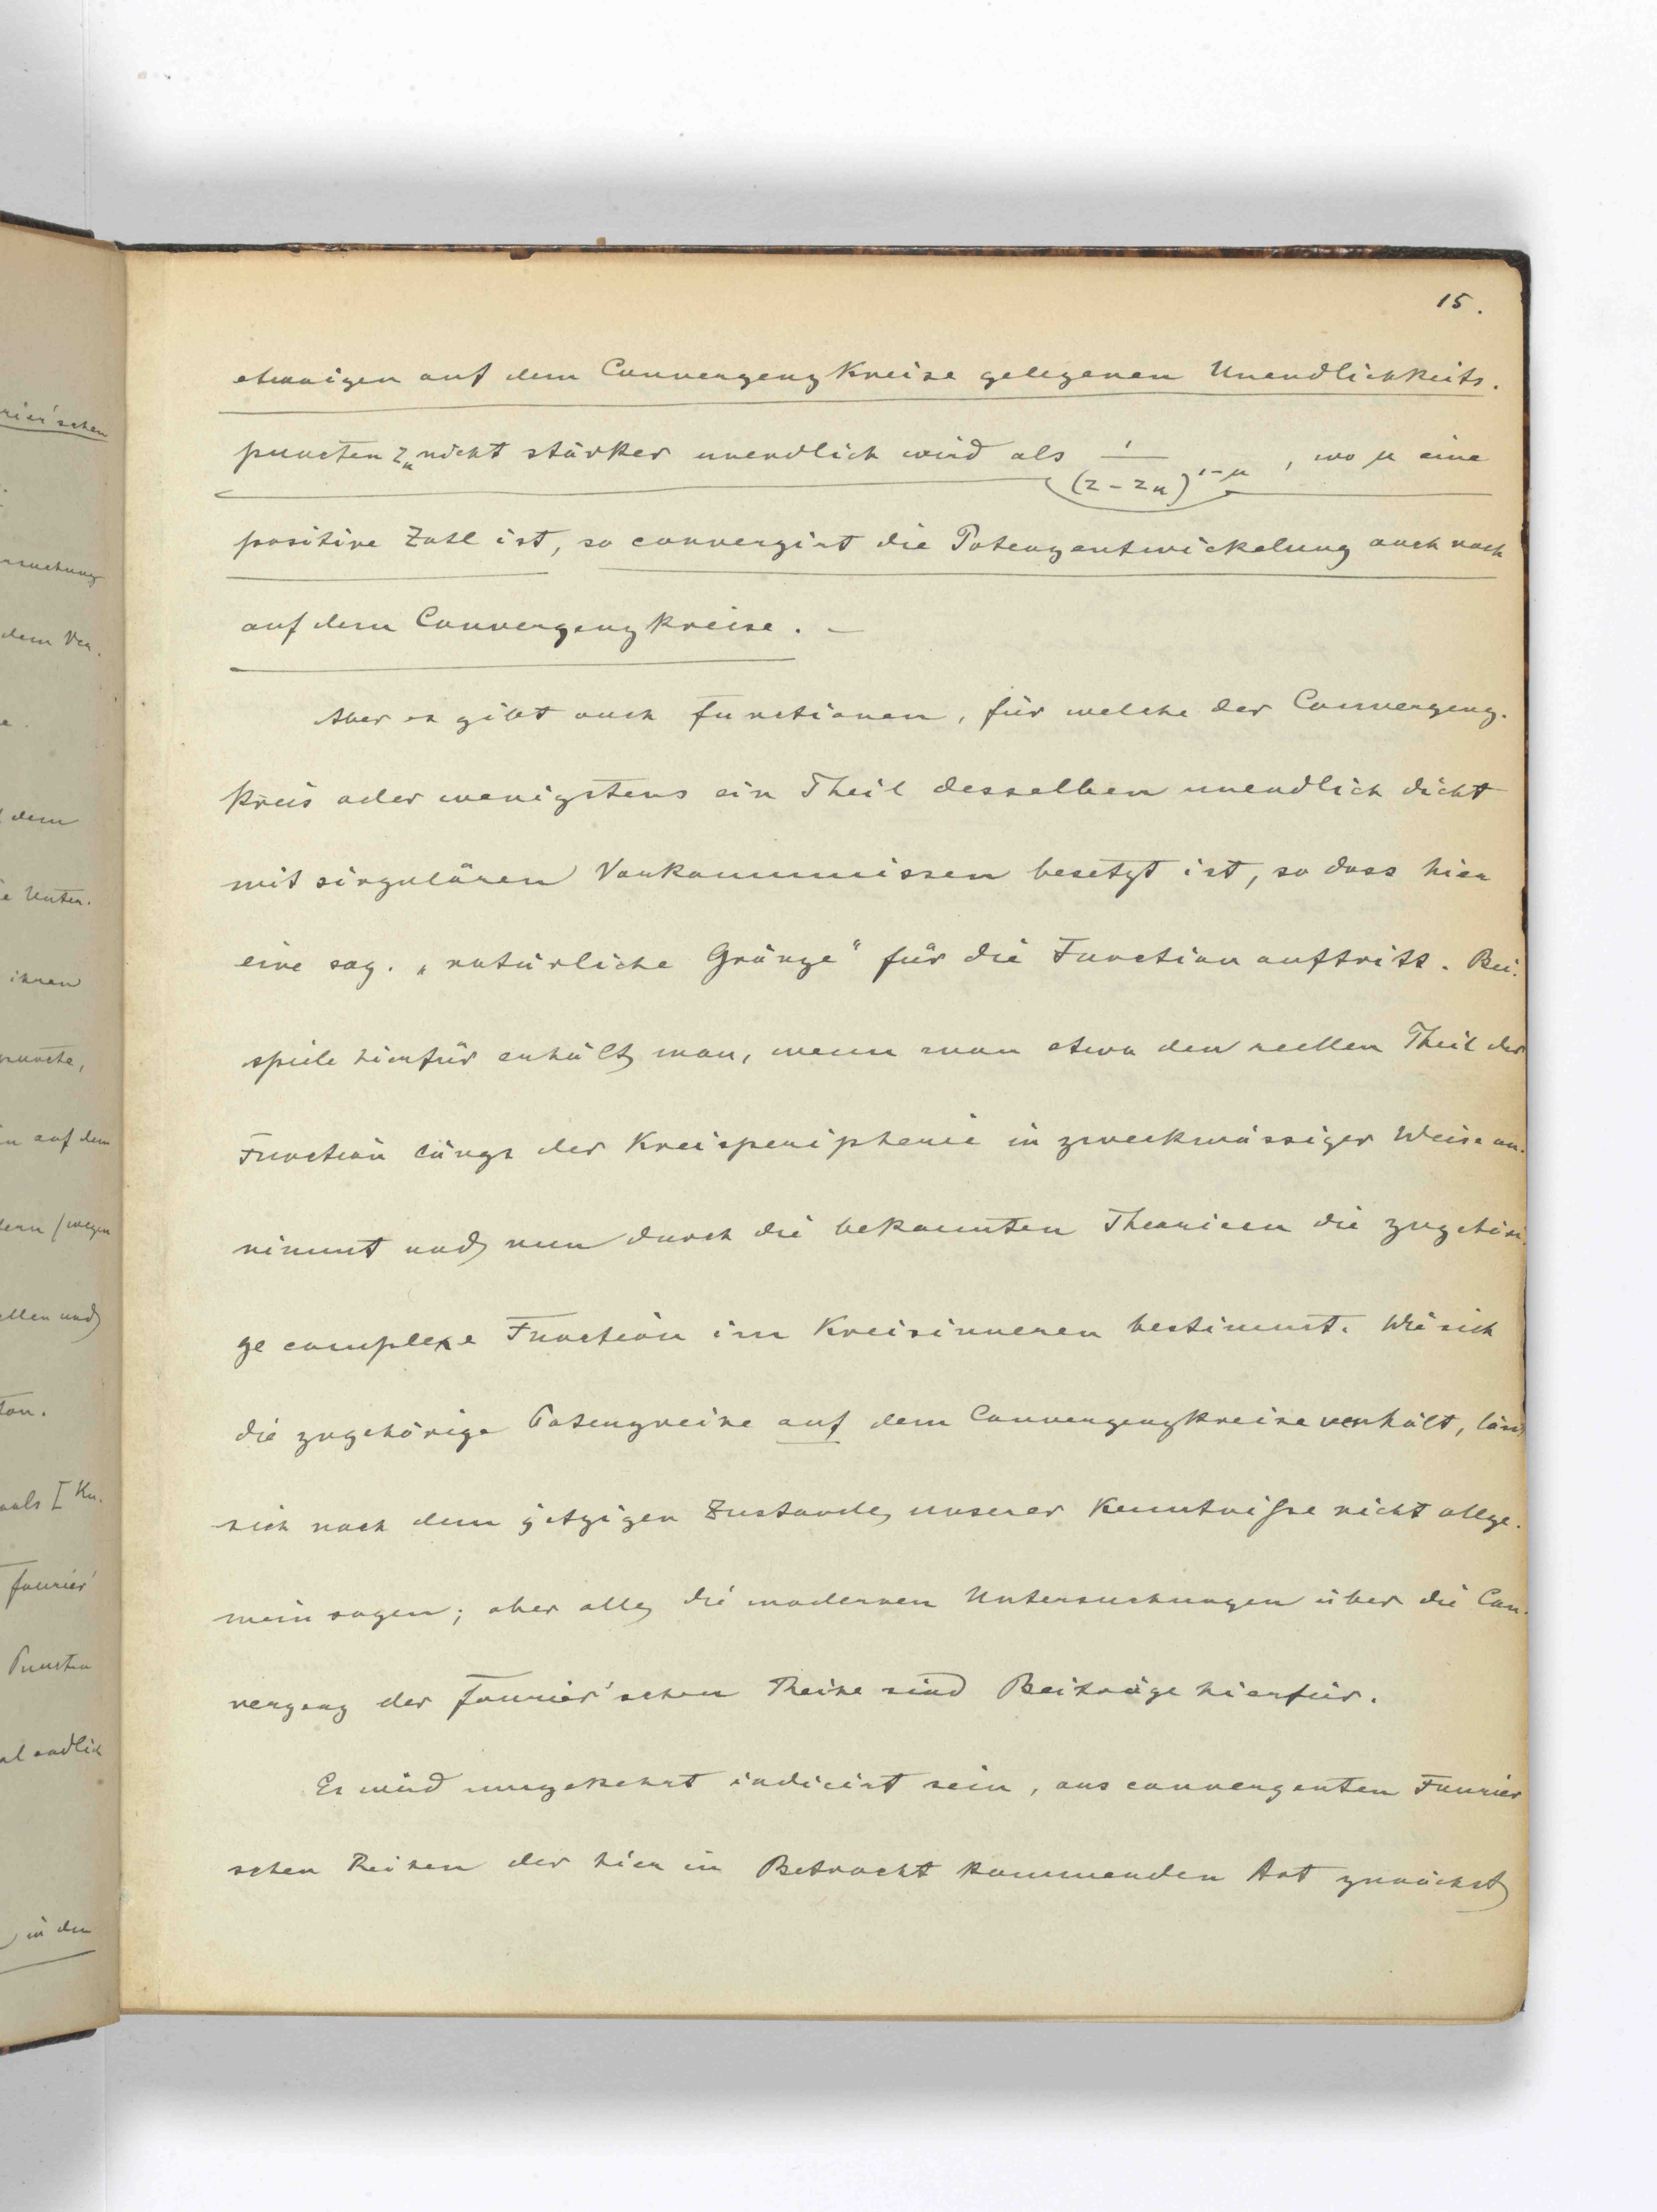 15.
etwaigen auf dem Convergenzkreise gelegenen Unendlichkeits-
puncten zₙ nicht stärker unendlich wird als 1/(z-zₙ)^(1-μ), wo μ eine
positive Zahl ist, so convergirt die Potenzentwickelung auch noch
auf dem Convergenzkreise. –
Aber es gibt auch Functionen, für welche der Convergenz-
kreis oder wenigstens ein Theil desselben unendlich dicht
mit singulären Vorkommnissen besetzt ist, so dass hier
eine sog. „natürliche Gränze" für die Function auftritt. Bei-
spiele hierfür erhält man, wenn man etwa den reellen Theil der
Function längs der Kreisperipherie in zweckmässiger Weise an-
nimmt und nun durch die bekannten Theorieen die zugehöri-
ge complexe Function im Kreisinneren bestimmt. Wie sich
die zugehörige Potenzreihe auf dem Convergenzkreise verhält, lässt
sich nach dem jetzigen Zustande unserer Kenntnisse nicht allge-
mein sagen; aber alle die modernen Untersuchungen über die Con-
vergenz der Fourier'schen Reihe sind Beiträge hierfür.
Es wird umgekehrt indicirt sein, aus convergenten Fourier
schen Reihen der hier in Betracht kommenden Art zunächst
rier'schen
rsuchung
dem Ver-
dem
e Unter-
ihren
puncte,
in auf dem
dern (wegen
ellen und
ton.
als [Kn.
Fourier'
Puncten
al endlich
in den